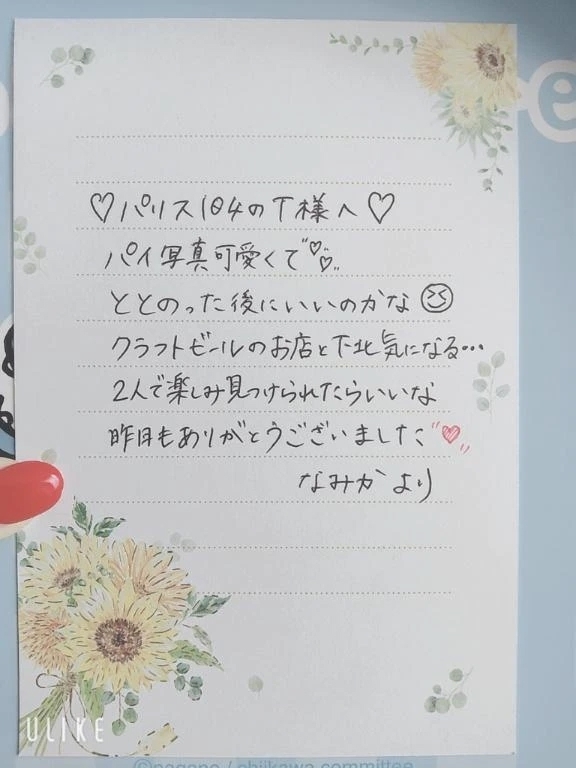 ♡パリス104のT様へ♡
パイ写真可愛くて♡♡
ととのった後にいいのかな
クラフトビールのお店と下北気になる…
2人で楽しみ見つけられたらいいな
昨日もありがとうございました♥
なみかより
ULIKE
©nagano / chiikawa committee